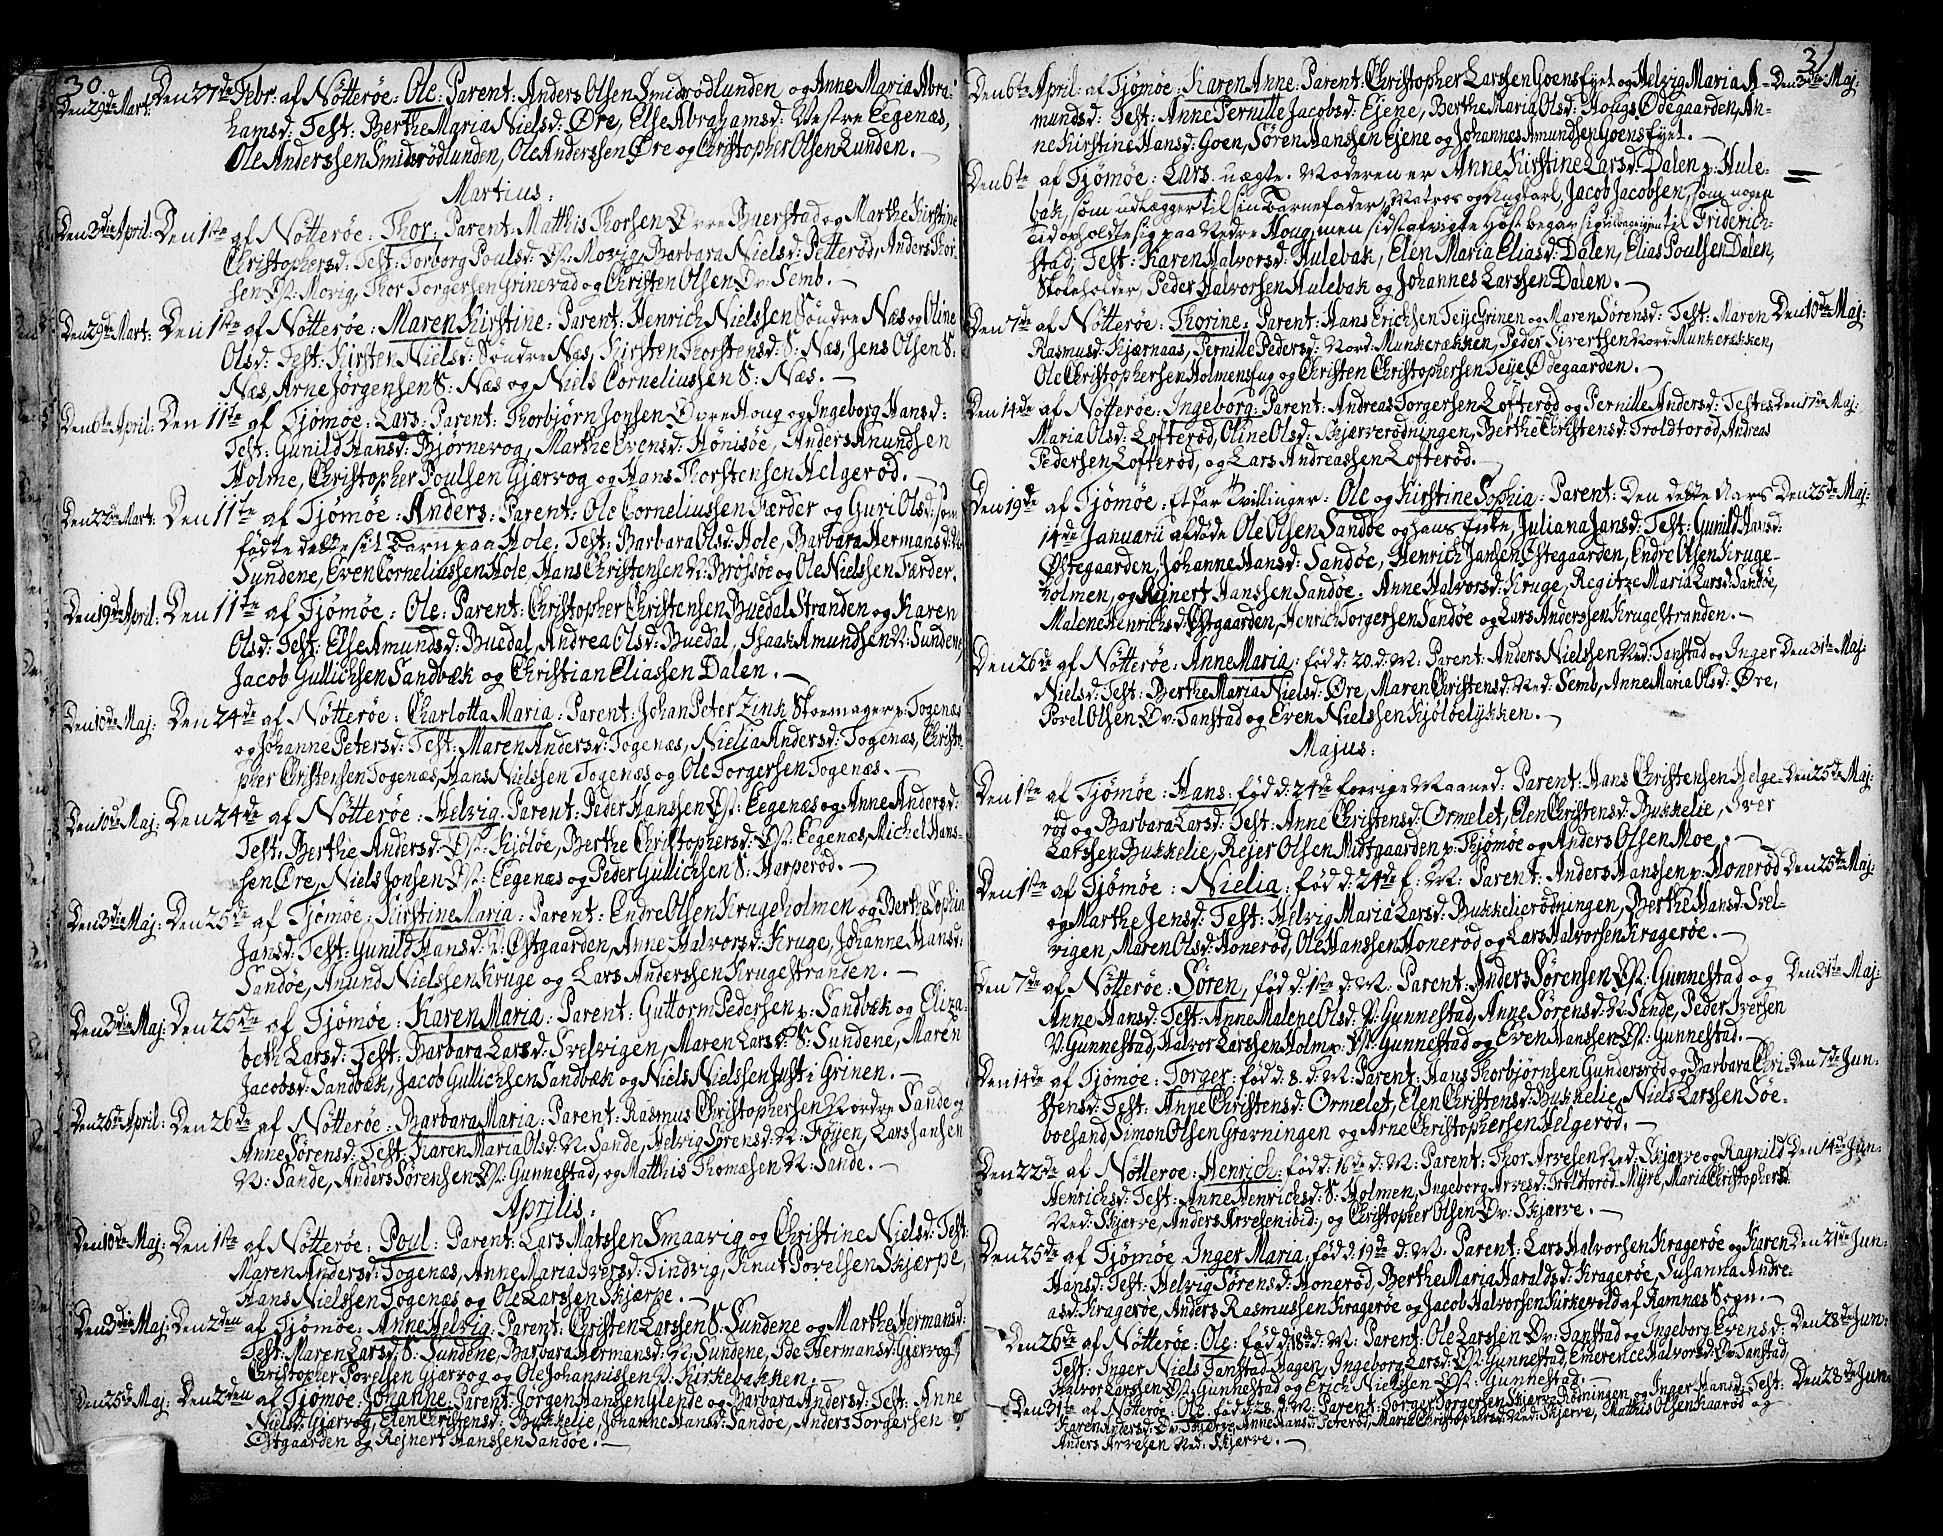 30.
Den 29de Mart: Den 27de Febr: af Nötteröe: Ole: Parent: Anders Olsen Smidsrödlunden og Anne Maria Abra-
hamsd: Test: Berthe Maria Nielsd: Öre, Else Abrahamsd: Vestre Eegenæs,
Ole Anderssen Smidsrödlunden, Ole Anderssen Öre og Christopher Olsen Lunden. —
Martius:
Den 3die April: Den 1ste af Nötteröe: Thor: Parent: Matthis Thorsen Övre Buerstad og Marthe Kirstine
Christophersd: Test: Torborg Poulsd: Öst: Movig, Barbara Nielsd: Petteröd, Anders Thor-
sen Öst: Movig, Thor Torgersen Grinerad og Christen Olsen Öv: Semb. —
Den 29de Mart: Den 1ste af Nötteröe: Maren Kirstine: Parent: Henrich Nielssen Söndre Næs og Oline
Olsd: Test: Kirsten Nielsd: Söndre Næs, Kirsten Thorstensd: S: Næs, Jens Olsen S:
Næs, Arne Jörgensen S: Næs og Niels Corneliussen S: Næs. —
Den 6te April: Den 11te af Tjömöe: Lars: Parent: Thorbjörn Jonsen Övre Houg og Ingeborg Hansd:
Test: Gunild Hansd: Bjørnevog, Marthe Evensd: Hönisöe, Anders Anundsen
Holme, Christopher Poulsen Gjærvog og Hans Thorstensen Helgeröd. —
Den 22de Mart: Den 11te af Tjömöe: Anders: Parent: Ole Corneliussen Færder og Guri Olsd: som
födte dette sit Barn paa Hole: Test: Barbara Olsd: Hole, Barbara Hermansd: N:
Sundene, Even Corneliussen Hole, Hans Christensen N: Brössöe og Ole Nielssen Færder.
Den 19de April: Den 11te af Tjömöe: Ole: Parent: Christopher Christensen Buedal Stranden og Karen
Olsd: Test: Else Amundsd: Buedal, Andrea Olsd: Buedal, Isaak Amundsen N: Sundene,
Jacob Gullichsen Sandbæk og Christian Eliassen Dalen. —
Den 10de Maj: Den 24de af Nötteröe: Charlotta Maria: Parent: Johan Peter Zink Skoemager p: Togenæs
og Johanne Petersd: Test: Maren Andersd: Togenæs, Nielia Andersd: Togenæs, Christo-
pher Christensen Togenæs, Hans Nielssen Togenæs og Ole Torgersen Togenæs. —
Den 10de Maj: Den 24de af Nötteröe: Helvig: Parent: Peder Hanssen Öst: Eegenæs og Anne Andersd:
Test: Berthe Andersd: Öst: Kjölöe, Berthe Christophersd: Öst: Eegenæs, Michel Hans-
sen Öre, Niels Jonsen Öst: Eegenæs og Peder Gullichsen S: Harperöd. —
Den 3die Maj: Den 25de af Tjömöe: Kirstine Maria: Parent: Endre Olsen Krugeholmen og Berthe Sophia
Jansd: Test: Gunild Hansd: N: Östgaarden, Anne Halvorsd: Kruge, Johanne Hansd:
Sandöe, Anund Nielssen Kruge og Lars Anderssen Krugestranden. —
Den 3die Maj: Den 25de af Tjömöe: Karen Maria: Parent: Guttorm Pedersen p: Sandbæk og Eliza-
beth Larsd: Test: Barbara Larsd: Svelvigen, Maren Larsd: S: Sundene, Maren
Jacobsd: Sandbæk, Jacob Gullichsen Sandbæk og Niels Nielssen Just i Grinen. —
Den 26de April: Den 26de af Nötteröe: Barbara Maria: Parent: Rasmus Christophersen Nordre Sande og
Anne Sörensd: Test: Karen Maria Olsd: N: Sande, Helvig Sörensd: N: Föyen, Lars Jansen
N: Sande, Anders Sörensen Öst: Gunnestad, og Matthis Thomæsen N: Sande. —
Aprilis:
Den 10de Maj: Den 1ste af Nötteröe: Poul: Parent: Lars Matssen Smaavig og Christine Nielsd: Test:
Maren Andersd: Togenæs, Anne Maria Iversd: Tindvig, Knut Povelsen Skjærpe,
Hans Nielssen Togenæs og Ole Larssen Skjærpe. —
Den 3die Maj: Den 2den af Tjömöe: Anne Helvig: Parent: Christen Larssen S: Sundene og Marthe Hermansd:
Test: Maren Larsd: S: Sundene, Barbara Hermansd: N: Sundene, Ide Hermansd: Gjærvog,
Christopher Povelsen Gjærvog og Ole Johannissen N: Kirkebakken. —
Den 25de Maj: Den 2den af Tjömöe: Johanne: Parent: Jörgen Hansen Glende og Barbara Andersd: Test: Anne
Nielsd: Gjærvog, Elen Christensd: Bukkelie, Johanne Hansd: Sandöe, Anders Torgersen
Östgaarden og Rejnert Hanssen Sandöe. —
31
Den 6te April: af Tjömöe: Karen Anne: Parent: Christopher Larssen Goensfyet og Helvig Maria A- Den 3die Maj:
mundsd: Test: Anne Pernille Jacobsd: Ejene, Berthe Maria Olsd: Hougs Ödegaarden, An-
ne Kirstine Hansd: Goen, Sören Hanssen Ejene og Johannes Amundsen Goensfyet. —
Den 6te af Tjömöe: Lars uægte. Moderen er Anne Kirstine Larsd: Dalen p: Hule-
bak, som udlægger til sin Barnefader, Matros og Ungkarl Jacob Jacobsen, som nogen
Tid opholdte sig paa Nedre Houg, men sidstafvigte Höst begav sig tilbage igjen til Friderich-
stad, Test: Karen Halvorsd: Hulebak, Elen Maria Eliasd: Dalen, Elias Poulsen Dalen,
Skoleholder, Peder Halvorsen Hulebak og Johannes Larssen Dalen. —
Den 7de af Nötteröe: Thorine: Parent: Hans Erichsen Teye Grinen og Maren Sörensd: Test: Maren Den 10de Maj:
Rasmusd: Kjærnaas, Pernille Pedersd: Nord: Munkerækken, Peder Siverthsen Nord: Munkerækken,
Ole Christophersen Holmensfug og Christen Christophersen Teye Ödegaarden. —
Den 14de af Nötteröe: Ingeborg: Parent: Andreas Torgersen Lofteröd og Pernille Andersd: Testes Den 17de Maj:
Maria Olsd: Lofteröd, Oline Olsd: Skjærverödningen, Berthe Christensd: Troldtoröd, Andreas
Pedersen Lofteröd, og Lars Andreassen Lofteröd. —
Den 19de af Tjömöe: Et Par Tvillinger: Ole og Kirstine Sophia: Parent: Den dette Aars Den 25de Maj:
14de Januarii afdöde Ole Olsen Sandöe og hans Enke, Juliana Jansd: Test: Gunild Hansd:
Östegaarden, Johanne Hansd: Sandöe, Henrich Jansen Östegaarden, Endre Olsen Kruge-
holmen, og Rejnert Hanssen Sandöe. Anne Halvorsd: Kruge, Regitze Maria Larsd: Sandöe,
Malene Henrichsd: Östgaarden, Henrich Torgersen Sandöe og Lars Anderssen Krugestranden. —
Den 26de af Nötteröe: Anne Maria: föd d: 20. d: M: Parent: Anders Nielssen Ned: Tanstad og Inger Den 31te Maj:
Nielsd: Test: Berthe Maria Nielsd: Öre, Maren Christensd: Ned: Semb, Anne Maria Olsd: Öre,
Povel Olsen Öv: Tanstad og Even Nielssen Kjölbelykken. —
Majus:
Den 1ste af Tjömöe: Hans: föd d: 24de forrige Maaned: Parent: Hans Christensen Helge- Den 25de Maj:
röd og Barbara Larsd: Test: Anne Christensd: Ormelet, Elen Christensd: Bukkelie, Iver
Larssen Bukkelie, Rejer Olsen Midtgaarden p: Tjömöe og Anders Olsen Moe. —
Den 1ste af Tjömöe: Nielia: föd d: 24de f: M: Parent: Anders Hanssen p: Honeröd Den 25de Maj:
og Marthe Jensd: Test: Helvig Maria Larsd: Bukkelierödningen, Berthe Hansd: Svel-
vigen, Maren Olsd: Honeröd, Ole Hanssen Honeröd og Lars Halvorsen Krageröe. —
Den 7de af Nötteröe: Sören, föd d: 1ste d: M: Parent: Anders Sörensen Öst: Gunnestad og Den 31te Maj:
Anne Hansd: Test: Anne Malene Olsd: V: Gunnestad, Anne Sörensd: N: Sande, Peder Iversen
V: Gunnestad, Halvor Larssen Holm p: Öst: Gunnestad og Even Hanssen Öst: Gunnestad.
Den 14de af Tjömöe: Torger: föd d: 8. d: M: Parent: Hans Thorbjörnsen Gunderröd og Barbara Chri- Den 7de Jun:
stensd: Test: Anne Christensd: Ormelet, Elen Christensd: Bukkelie, Niels Larssen Söe-
boesand, Simon Olsen Gravningen og Arne Christophersen Helgeröd. —
Den 22de af Nötteroe: Henrich: föd d: 16de d: M: Parent: Thor Arvesen Ned: Skjærve og Ragnild Den 14de Jun:
Henrichsd: Test: Anne Henrichsd: S: Holmen, Ingeborg Arvesd: Troldtoröd Myre, Maria Christophersd:
Ned: Skjærve, Anders Arvesen ibid: og Christopher Olsen Öv: Skjærve. —
Den 25de af Tjömöe Inger Maria: föd d: 19de d: M: Parent: Lars Halvorsen Krageröe og Karen Den 21de Jun:
Hansd: Test: Helvig Sörensd: Honeröd, Berthe Maria Haraldsd: Krageröe, Susanna Andre-
asd: Krageröe, Anders Rasmussen Krageröe og Jacob Halvorsen Kirkevold af Ramnæs Sogn. —
Den 26de af Nötteröe: Ole: föd d: 18de d: M: Parent: Ole Larssen Öv: Tanstad og Ingeborg Evensd: Den 28de Jun:
Test: Inger Niels Tanstad Hagen, Ingeborg Larsd: Öst: Gunnestad, Emerence Halvorsd: Öv: Tanstad,
Halvor Larssen Öst: Gunnestad og Erich Nielssen Öst: Gunnestad. —
Den 31te af Nötteröe: Ole: föd d: 28. d: M: Parent: Torger Torgersen Skjærve Rödningen og Inger Hansd: Test: Den 28de Jun:
Karen Andersd: Öv: Skjærve, Anne Hansd: Peteröd, Maria Christophersd: Ned: Skjerve, Mathis Olsen Kaaröd og
Anders Arvesen Ned: Skjærve. —